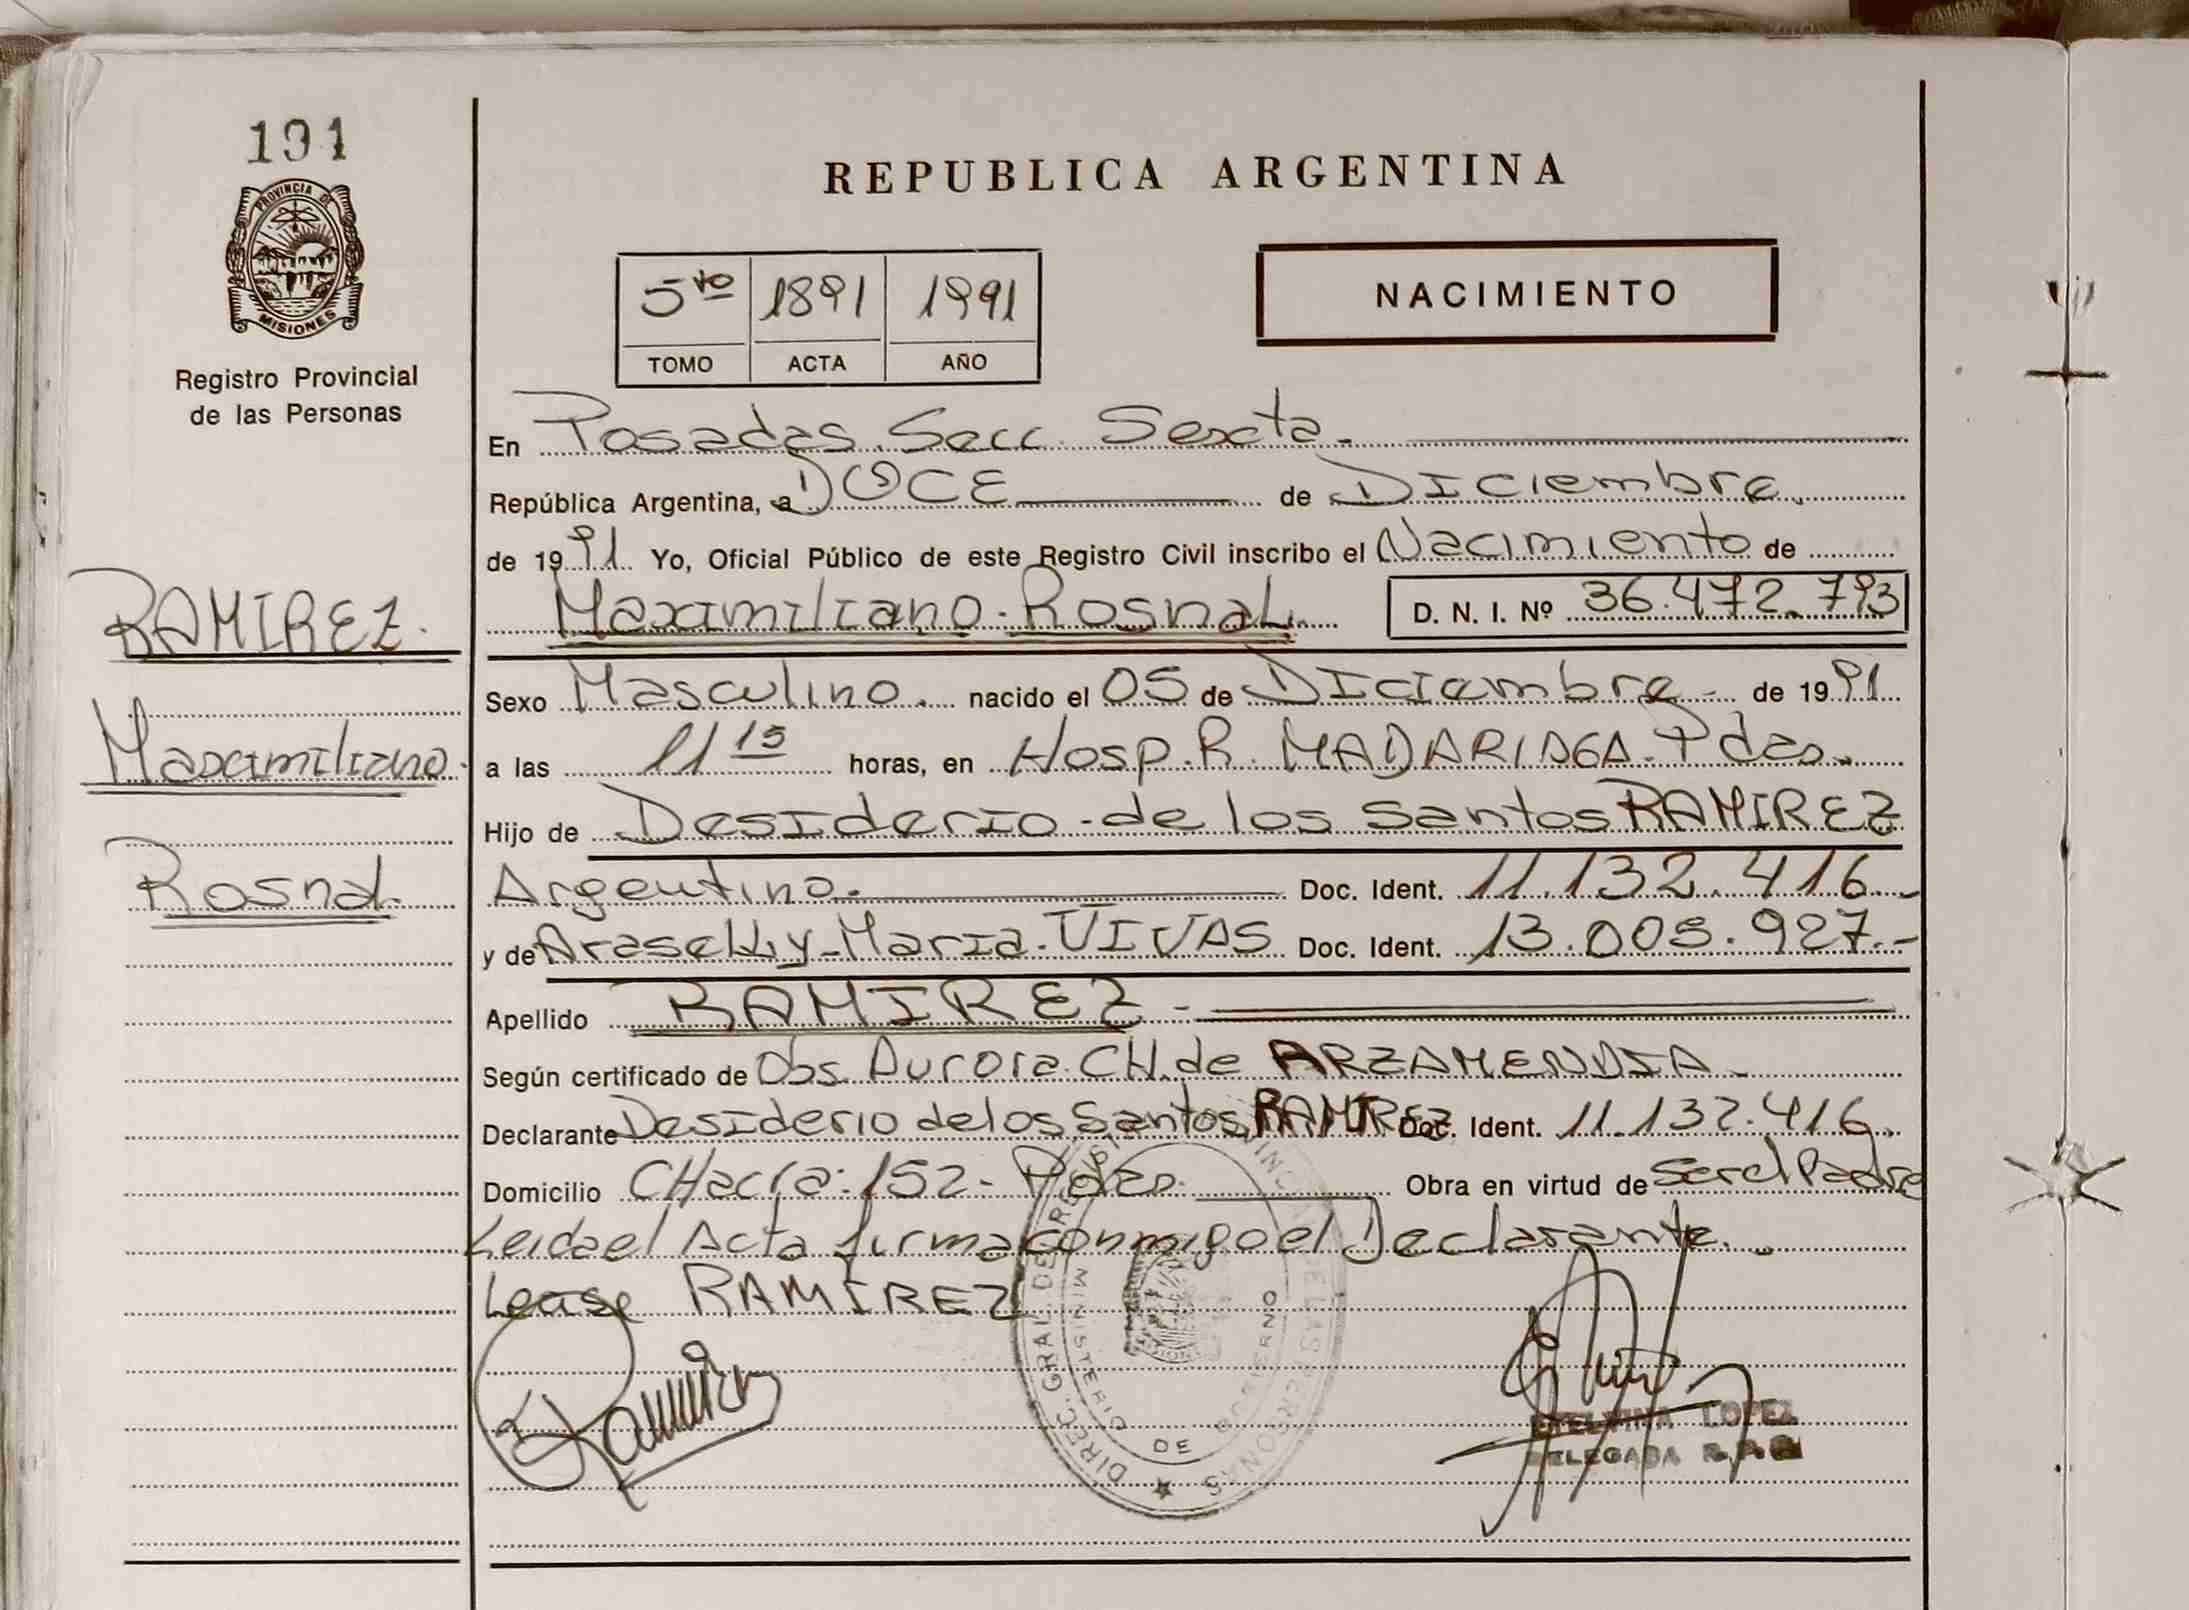 191
PROVINCIA DE
MISIONES
Registro Provincial
de las Personas
REPUBLICA ARGENTINA
5to 1891 1991
TOMO ACTA AÑO
NACIMIENTO
En Posadas. Secc. Sexta.
República Argentina, a DOCE de Diciembre.
de 1991 Yo, Oficial Público de este Registro Civil inscribo el Nacimiento de
Maximiliano. Rosnal. D. N. I. Nº 36.472.793
RAMIREZ.
Maximiliano.
Rosnal.
Sexo Masculino. nacido el 05 de Diciembre - de 1991
a las 11 15 horas, en Hosp. R. MADARIAGA. Pdas.
Hijo de Desiderio - de los Santos RAMIREZ
Argentino. Doc. Ident. 11.132.416.-
y de Araselly - Maria. VIVAS Doc. Ident. 13.005.927.-
Apellido RAMIREZ -
Según certificado de Obs. Aurora. CH. de ARZAMENDIA.
Declarante Desiderio de los Santos RAMIREZ Doc. Ident. 11.132.416.
Domicilio CHacra: 152- Pdas. Obra en virtud de Ser el Padre
Leida el Acta firma conmigo el Declarante.
Lease RAMIREZ
DIREC. GRAL. DE PERSONAS
MINISTERIO DE GOBIERNO
Ramirez
LOPEZ
DELEGADA